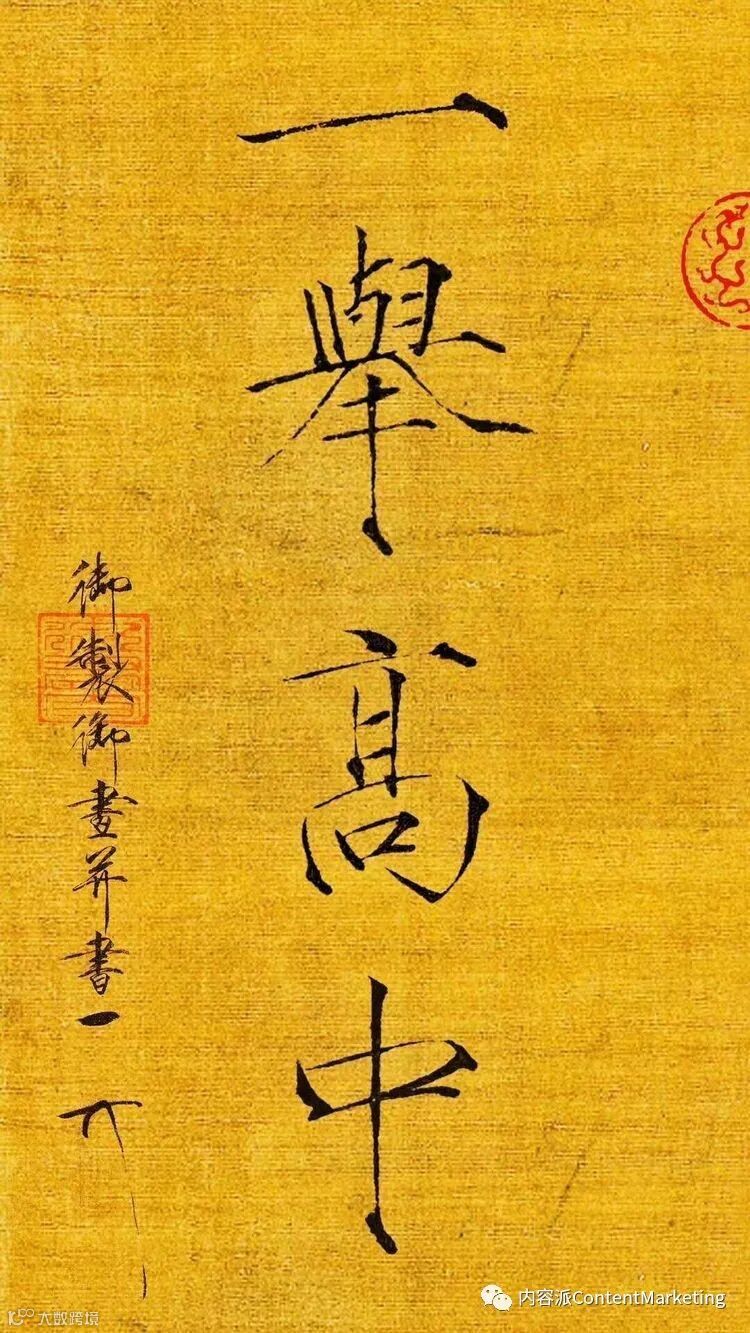 一舉高中
御製御畫并書一
内容派ContentMarketing
大数跨境